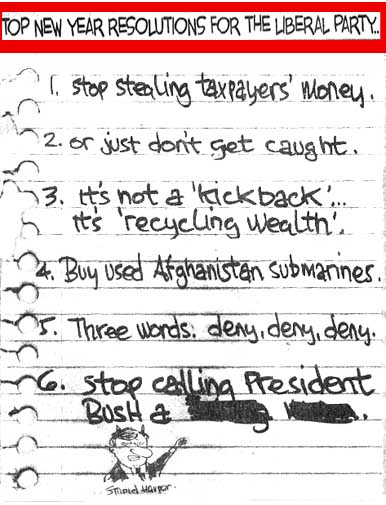 TOP NEW YEAR RESOLUTIONS FOR THE LIBERAL PARTY..
1. stop stealing taxpayers' money.
2. or just don't get caught.
3. it's not a 'kickback'...
it's 'recycling wealth'.
4. Buy used Afghanistan submarines.
5. Three words: deny, deny, deny.
6. stop calling President
BUSH a
Stupid Harper.